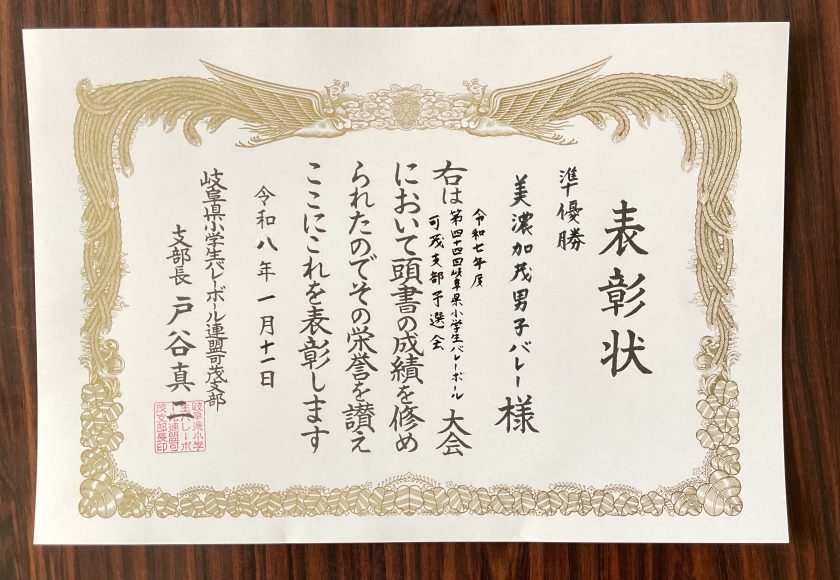 表彰状
準優勝
美濃加茂男子バレー様
右は
令和七年度
第四十四回岐阜県小学生バレーボール
可茂支部予選会
大会
において頭書の成績を修め
られたのでその栄誉を讃え
ここにこれを表彰します
令和八年一月十一日
岐阜県小学生バレーボール連盟可茂支部
支部長 戸谷真二
岐阜県小学
生バレーボ
ール連盟可
茂支部長印